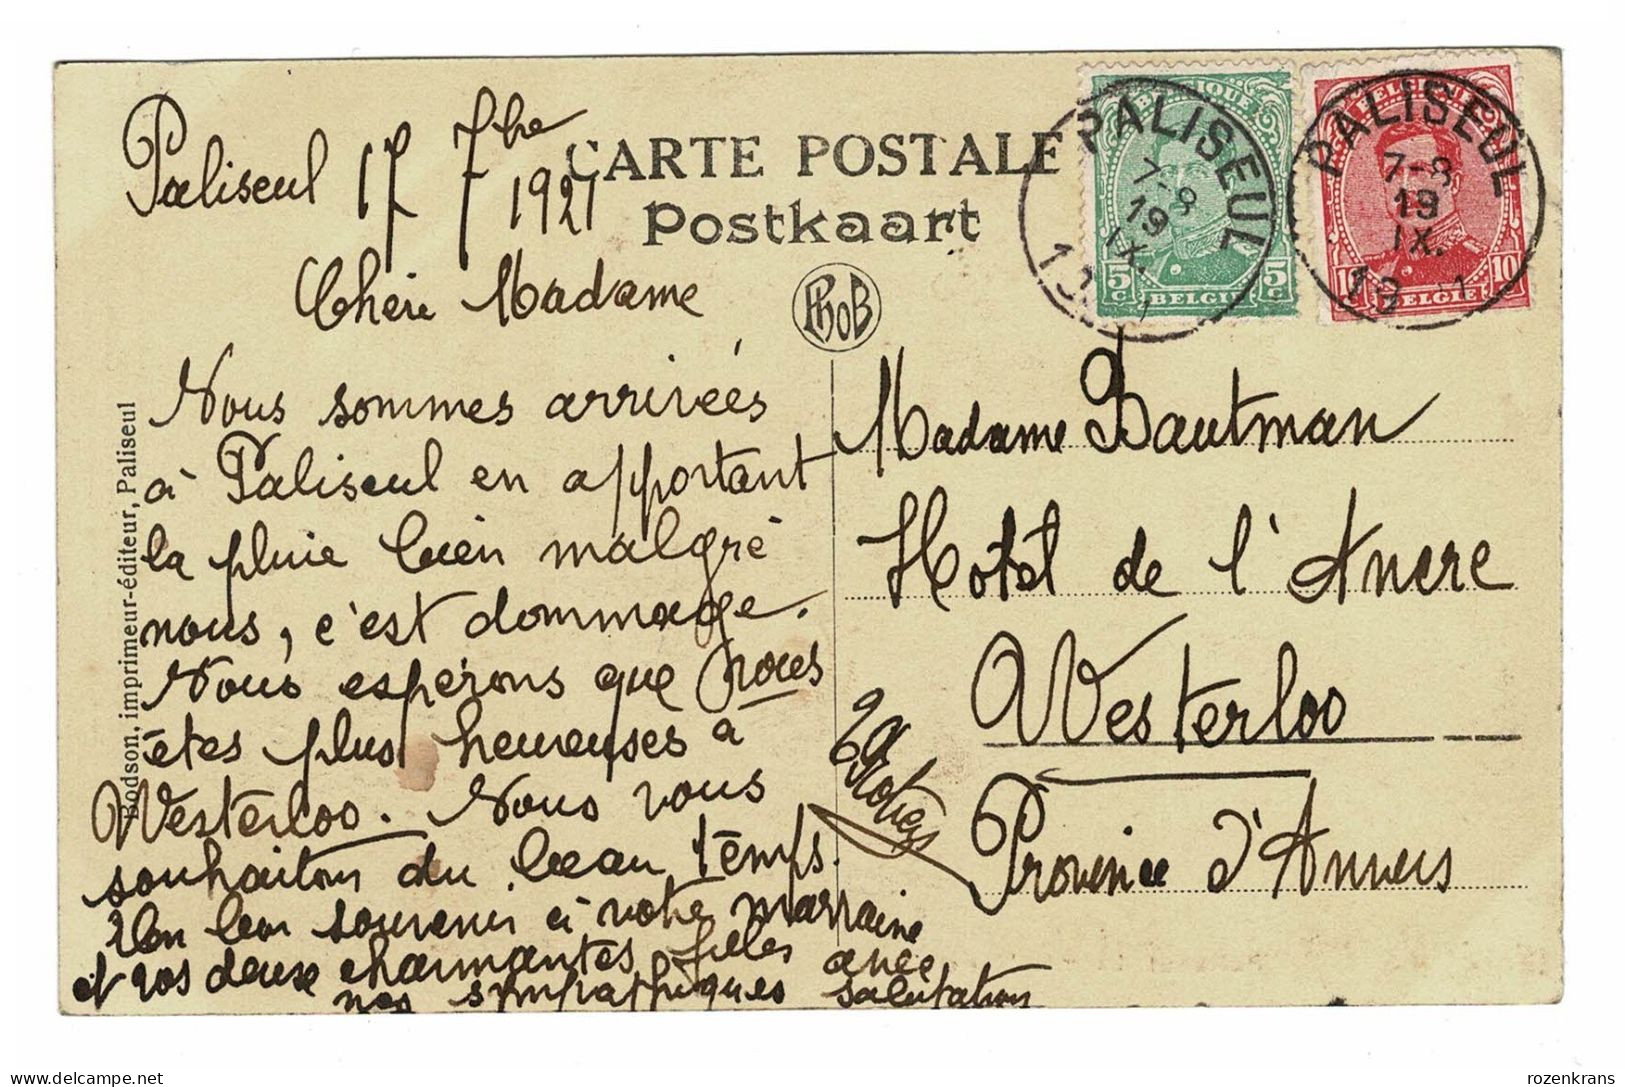 Paliseul 17 7bre 1921
CARTE POSTALE
Postkaart
PhoB
Chère Madame
Nous sommes arrivées
à Paliseul en apportant
la pluie bien malgré
nous, c'est dommage.
Nous espérons que vous
êtes plus heureuses à
Westerloo. Nous vous
souhaitons du beau temps.
Un bon souvenir à votre marraine
et vos deux charmantes filles avec
nos sympathiques salutations
Bodson, imprimeur-éditeur, Paliseul
BELGIQUE
5 c 5 c
BELGIE
PALISEUL
7-8
19
IX.
BELGIQUE
10 10
BELGIE
PALISEUL
7-8
19
IX.
Madame Bautman
Hotel de l'Ancre
Westerloo
Province d'Anvers
rozenkrans